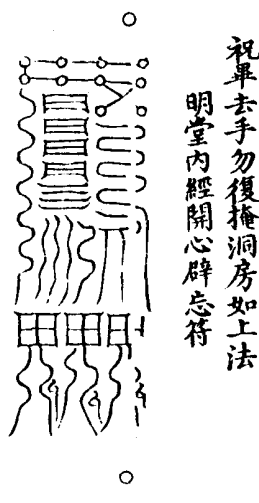 祝畢去手勿復掩洞房如上法
明堂內經開心辟忘符